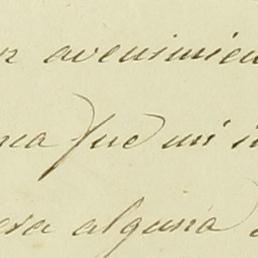 n avenimien
na fue mi i
esa alguna